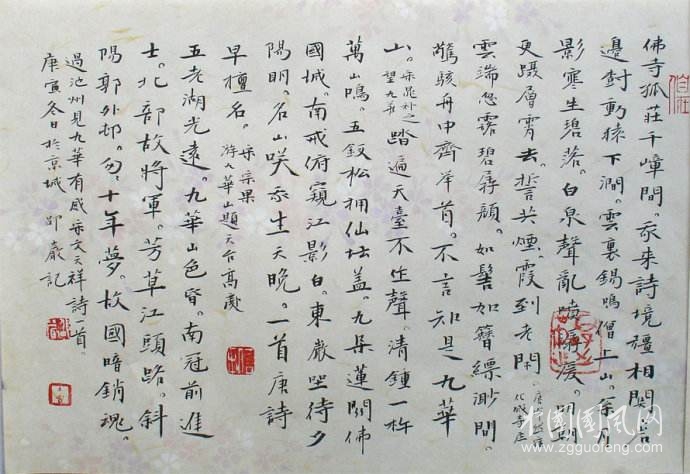 佛寺狐莊千嶂間。我来詩境強相關。岩
邊樹動猿下澗。雲裏錫鳴僧上山。松月
影寒生碧落。石泉聲亂噴潺湲。明朝
更躡層霄去。誓共煙霞到老閒。
化成寺
雲端忽露碧孱顏。如髻如簪縹渺間。
驚駭舟中齊举首。不言知是九華
山。宋晁補之望九華 踏遍天臺不作聲。清鍾一杵
萬山鳴。五釵松拥仙坛蓋。九朵蓮開佛
國城。南戒俯窺江影白。東巖坐待夕
陽明。名山咲我生天晚。一首唐詩
早檀名。宋宗杲 游九華山題天台高處
五老湖光遠。九華山色昏。南冠前進
士。北部故將軍。芳草江頭路。斜
陽郭外邨。匆匆十年夢。故國暗銷魂。
過池州見九華有感 宋文天祥詩一首。
庚寅冬日於京城 邵巖記
中国国风网
www.zgguofeng.com